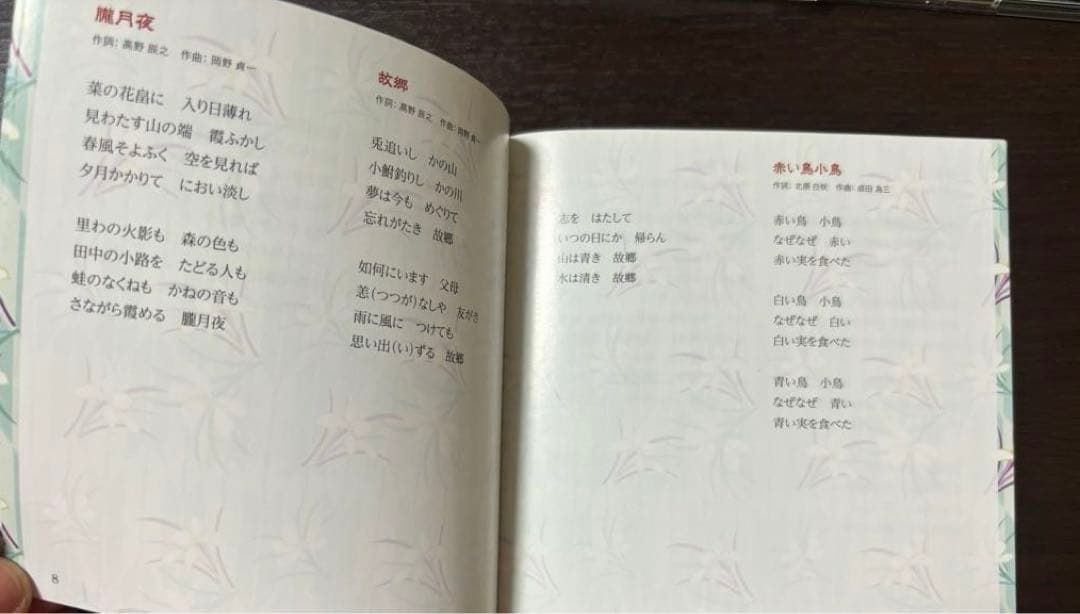 朧月夜
作詞：高野 辰之　作曲：岡野 貞一
菜の花畠に　入り日薄れ
見わたす山の端　霞ふかし
春風そよふく　空を見れば
夕月かかりて　におい淡し
里わの火影も　森の色も
田中の小路を　たどる人も
蛙のなくねも　かねの音も
さながら霞める　朧月夜
故郷
作詞：高野 辰之　作曲：岡野 貞一
兎追いし　かの山
小鮒釣りし　かの川
夢は今も　めぐりて
忘れがたき　故郷
如何にいます　父母
恙(つつが)なしや　友がき
雨に風に　つけても
思い出(い)ずる　故郷
志を　はたして
いつの日にか　帰らん
山は青き　故郷
水は清き　故郷
赤い鳥小鳥
作詞：北原 白秋　作曲：成田 為三
赤い鳥　小鳥
なぜなぜ　赤い
赤い実を食べた
白い鳥　小鳥
なぜなぜ　白い
白い実を食べた
青い鳥　小鳥
なぜなぜ　青い
青い実を食べた
8